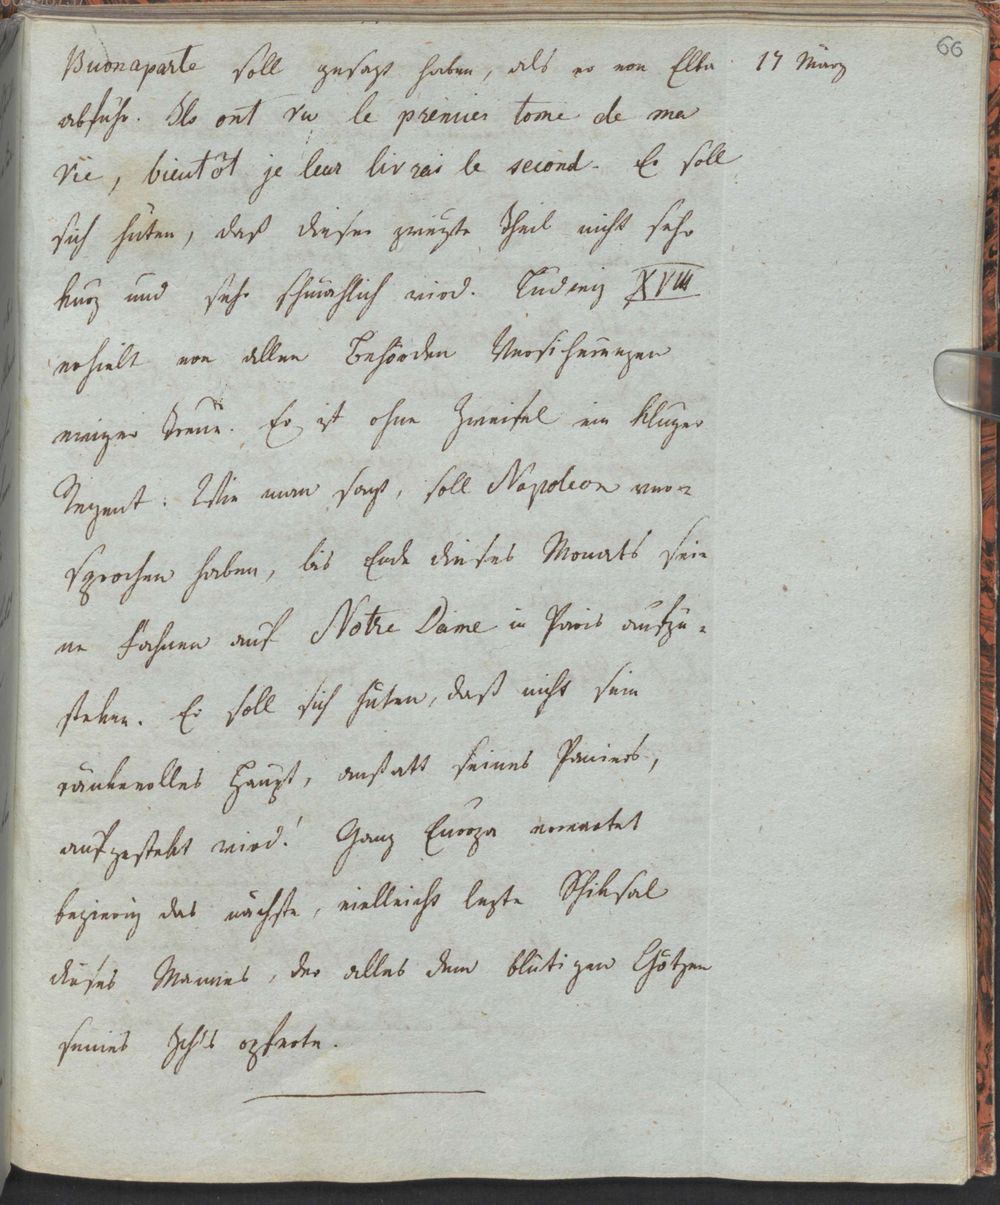 66
Buonaparte soll gesagt haben, als er von Elba 17 März
abfuhr. Ils ont vu le premier tome de ma
vie, bientôt je leur livrai le second. Er soll
sich hüten, daß dieser zweyte Theil nicht sehr
kurz und sehr schmählich wird. Ludwig XVIII
erhielt von allen Behörden Versicherungen
ewiger Treue. Er ist ohne Zweifel ein kluger
Regent. Wie man sagt, soll Napoleon ver=
sprochen haben, bis Ende dieses Monats sei=
ne Fahnen auf Notre Dame in Paris aufzu=
steken. Er soll sich hüten, daß nicht sein
ränkevolles Haupt, anstatt seines Paniers,
aufgestekt wird! Ganz Europa erwartet
begierig das nächste, vielleicht lezte Schiksal
dieses Mannes, der alles dem blutigen Götzen
seines Ich's opferte.